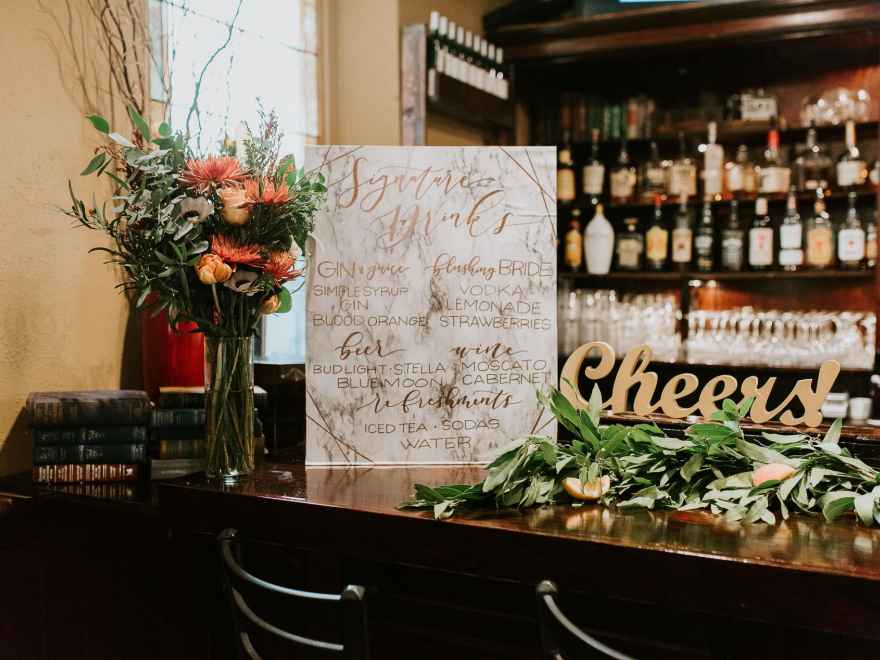 Signature
Drinks
GIN & juice
SIMPLE SYRUP
GIN
BLOOD ORANGE
blushing BRIDE
VODKA
LEMONADE
STRAWBERRIES
beer
BUD LIGHT · STELLA
BLUE MOON
wine
MOSCATO
CABERNET
refreshments
ICED TEA · SODAS
WATER
Cheers!